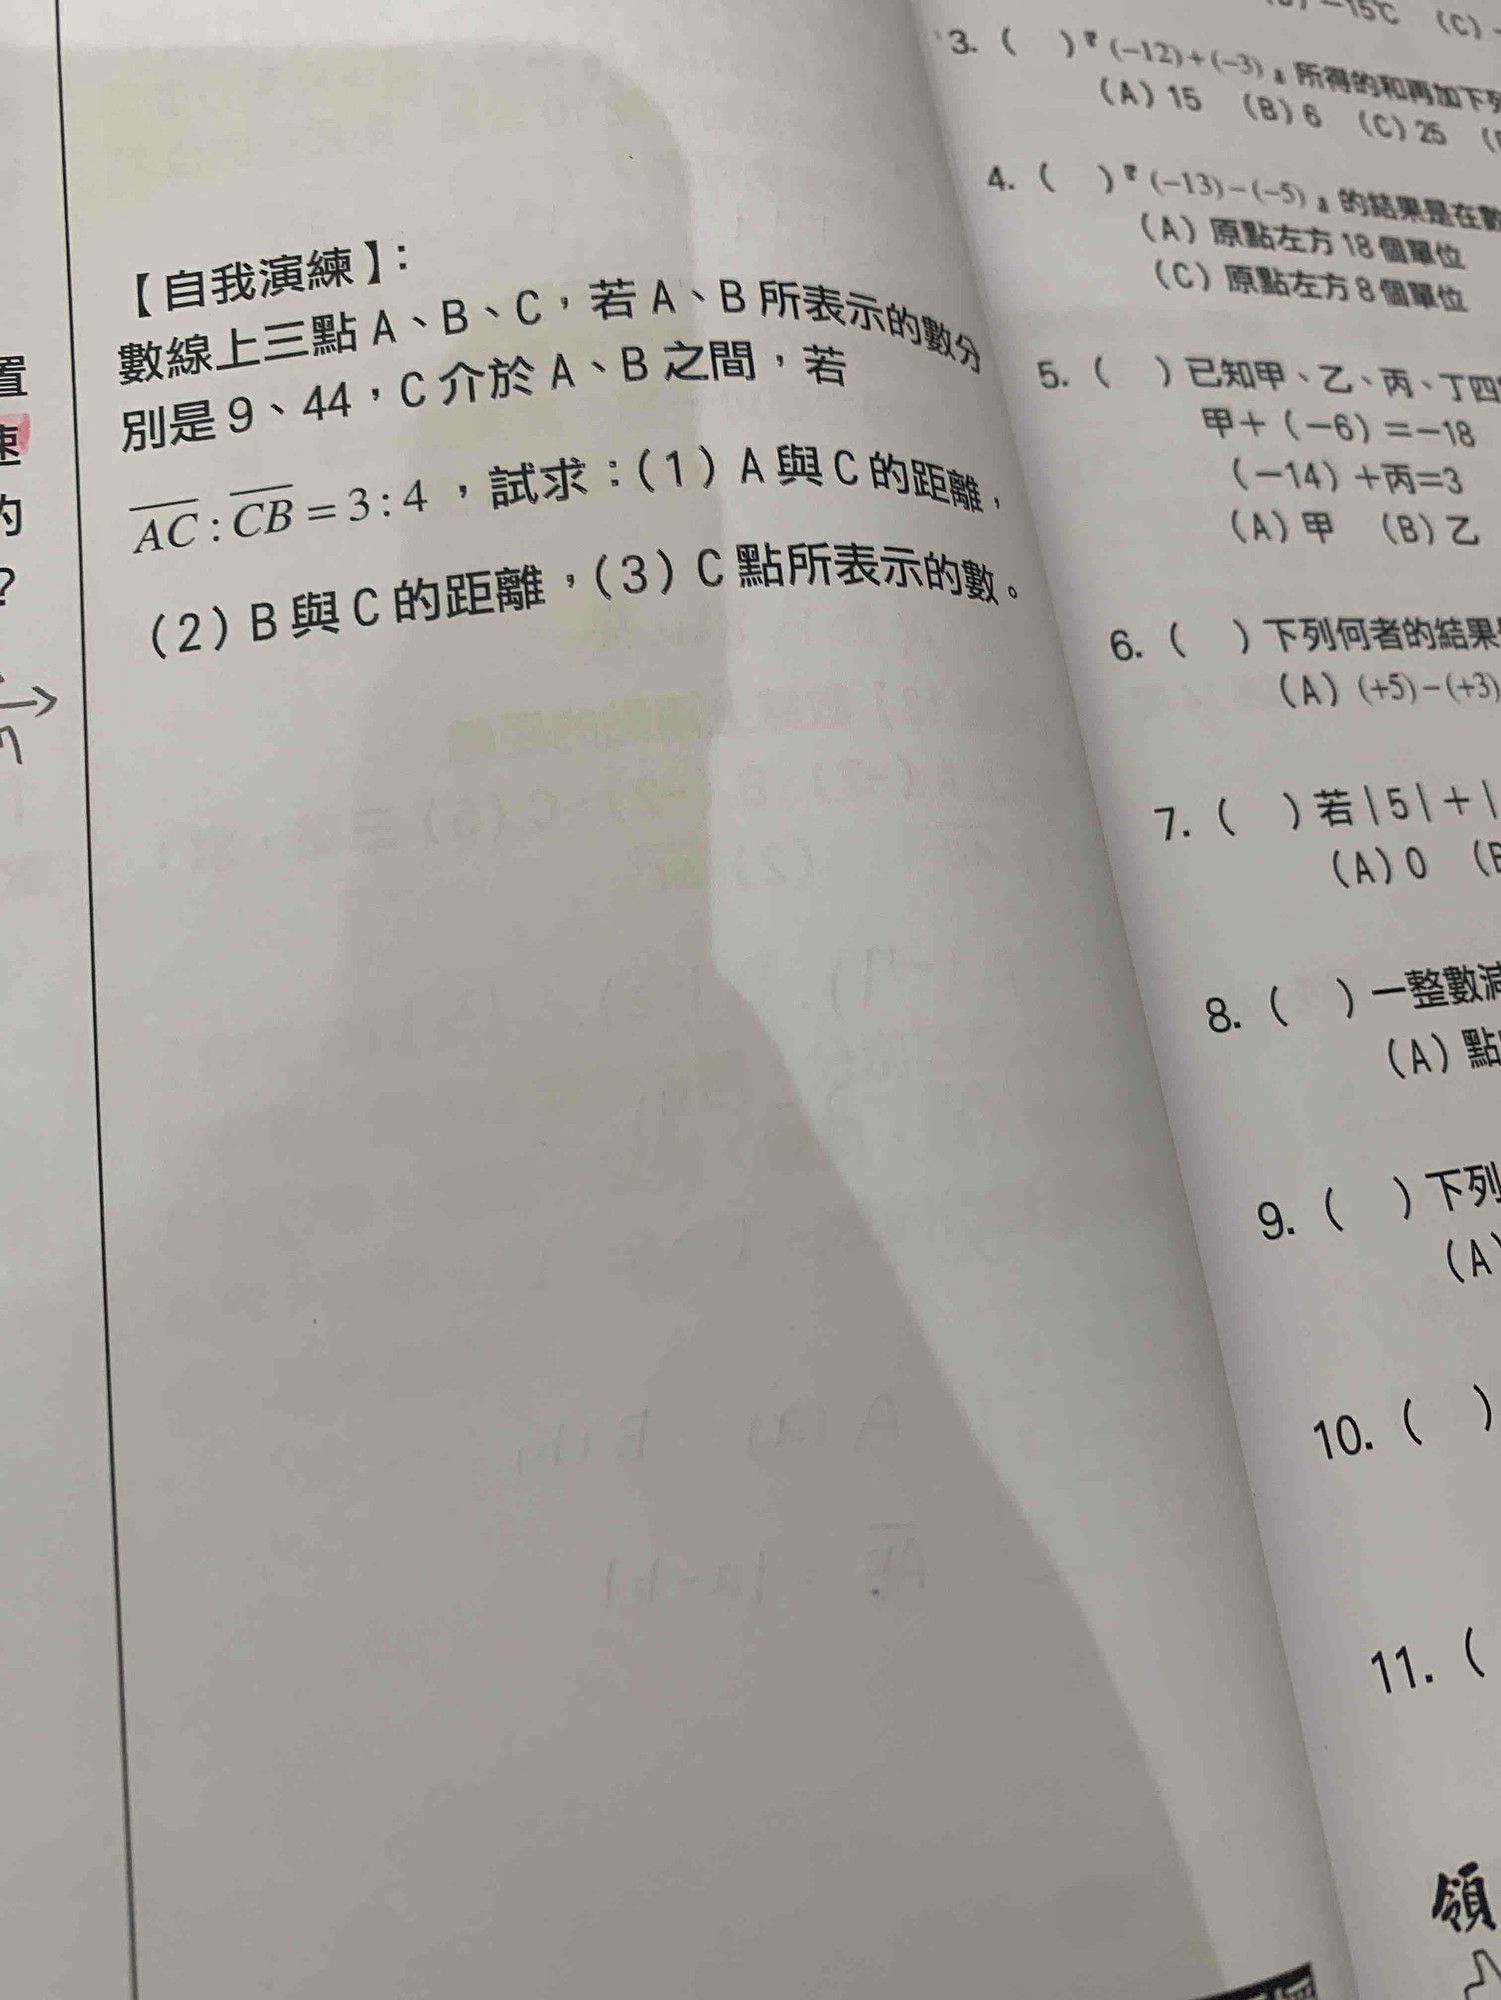 置
速
的
?
n
【自我演練】：
數線上三點 A、B、C，若 A、B 所表示的數分
別是 9、44，C 介於 A、B 之間，若
AC : CB = 3 : 4 ，試求：(1) A 與 C 的距離，
(2) B 與 C 的距離，(3) C 點所表示的數。
-15℃ (C)
3. (   )『(-12)+(-3)』所得的和再加下列
(A) 15 (B) 6 (C) 25
4. (   )『(-13)-(-5)』的結果是在數
(A) 原點左方 18 個單位
(C) 原點左方 8 個單位
5. (   ) 已知甲、乙、丙、丁四
甲+(-6)=-18
(-14)+丙=3
(A) 甲 (B) 乙
6. (   ) 下列何者的結果
(A) (+5)-(+3)
7. (   ) 若 |5|+|
(A) 0 (B
8. (   ) 一整數減
(A) 點
9. (   ) 下列
(A)
10. (   )
11. (
領